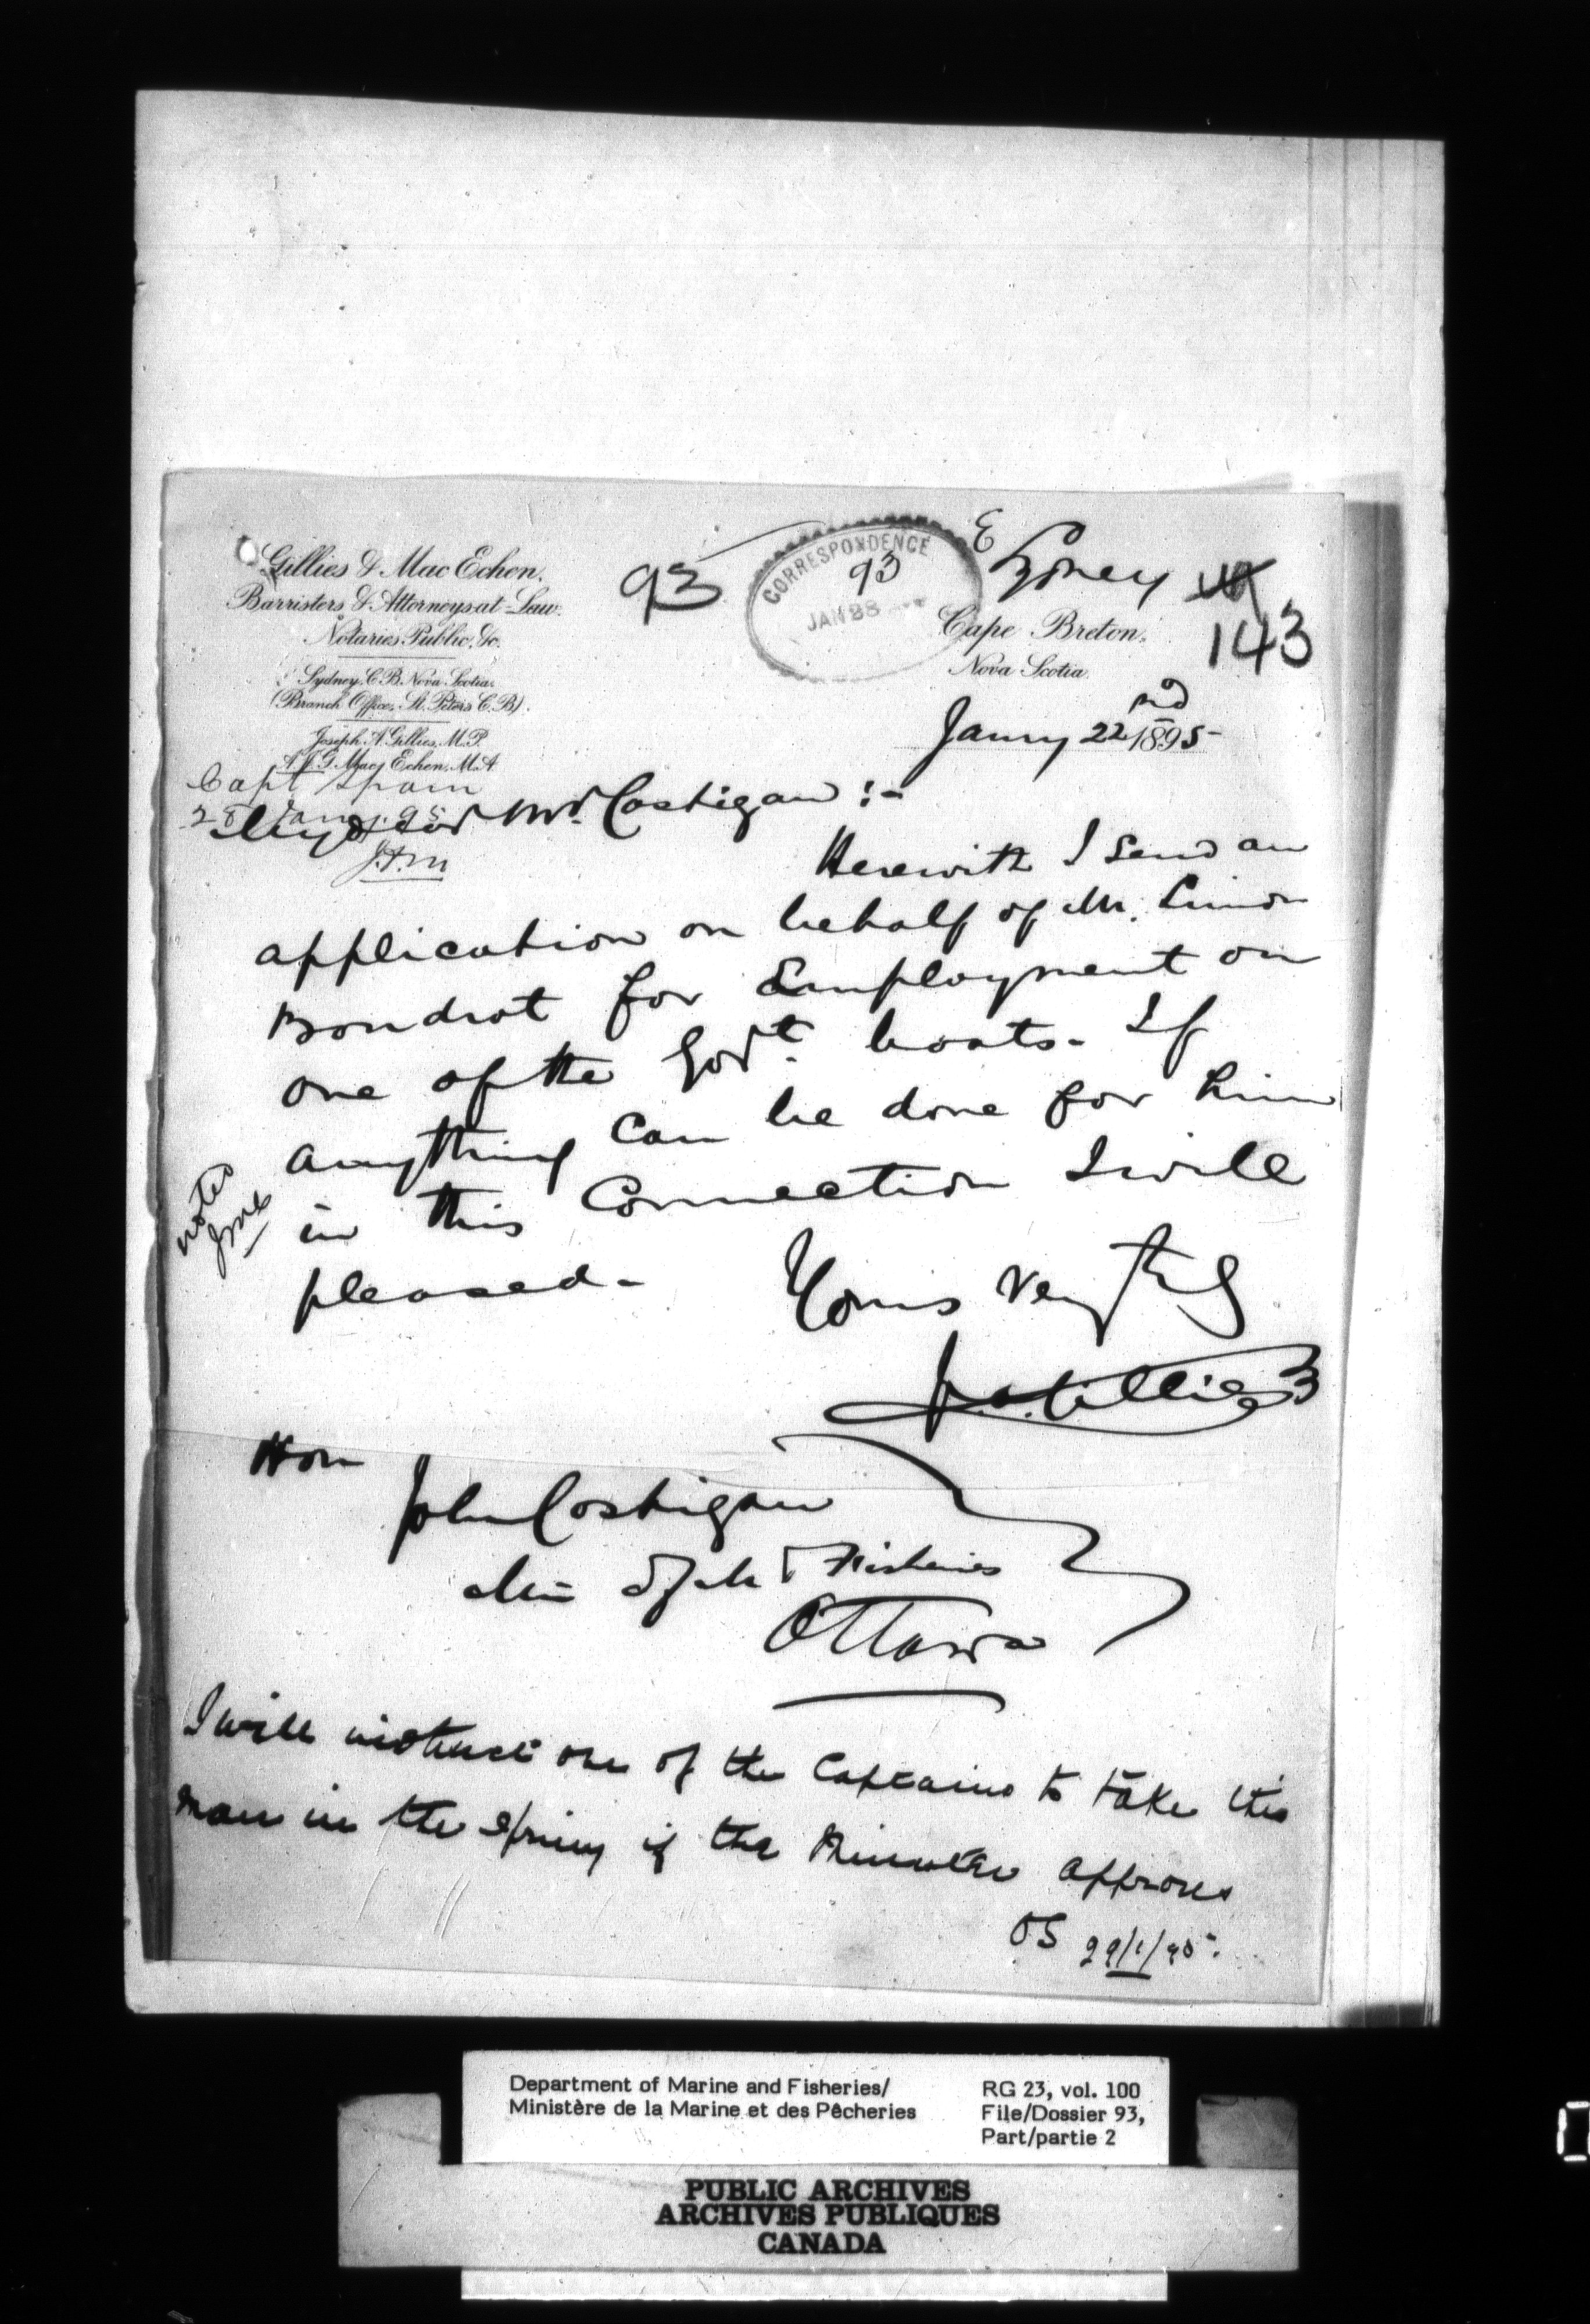 Gillies & Mac Echen.
Barristers & Attorneys at Law.
Notaries Public, &c.
Sydney, C.B. Nova Scotia.
(Branch Office, St. Peters C.B.)
Joseph A. Gillies, M.P.
A.J.G. Mac Echen, M.A.
93
CORRESPONDENCE
93
JAN 28
E
Sydney
Cape Breton,
Nova Scotia.
143
Jany 22nd 1895
Capt Spain
28 Jany. 95
My dear Mr. Costigan :-
Herewith I send an
application on behalf of Mr. Simon
Boudrot for Employment on
one of the Govt. boats - If
anything can be done for him
in this Connection I will
pleased -
noted
Yours very try
J.A. Gillies
Hon
John Costigan
Min of M & Fisheries
Ottawa
I will instruct one of the Captains to take this
man in the Spring if the Minister approves
OS 29/1/95.
Department of Marine and Fisheries/
Ministère de la Marine et des Pêcheries
RG 23, vol. 100
File/Dossier 93,
Part/partie 2
PUBLIC ARCHIVES
ARCHIVES PUBLIQUES
CANADA